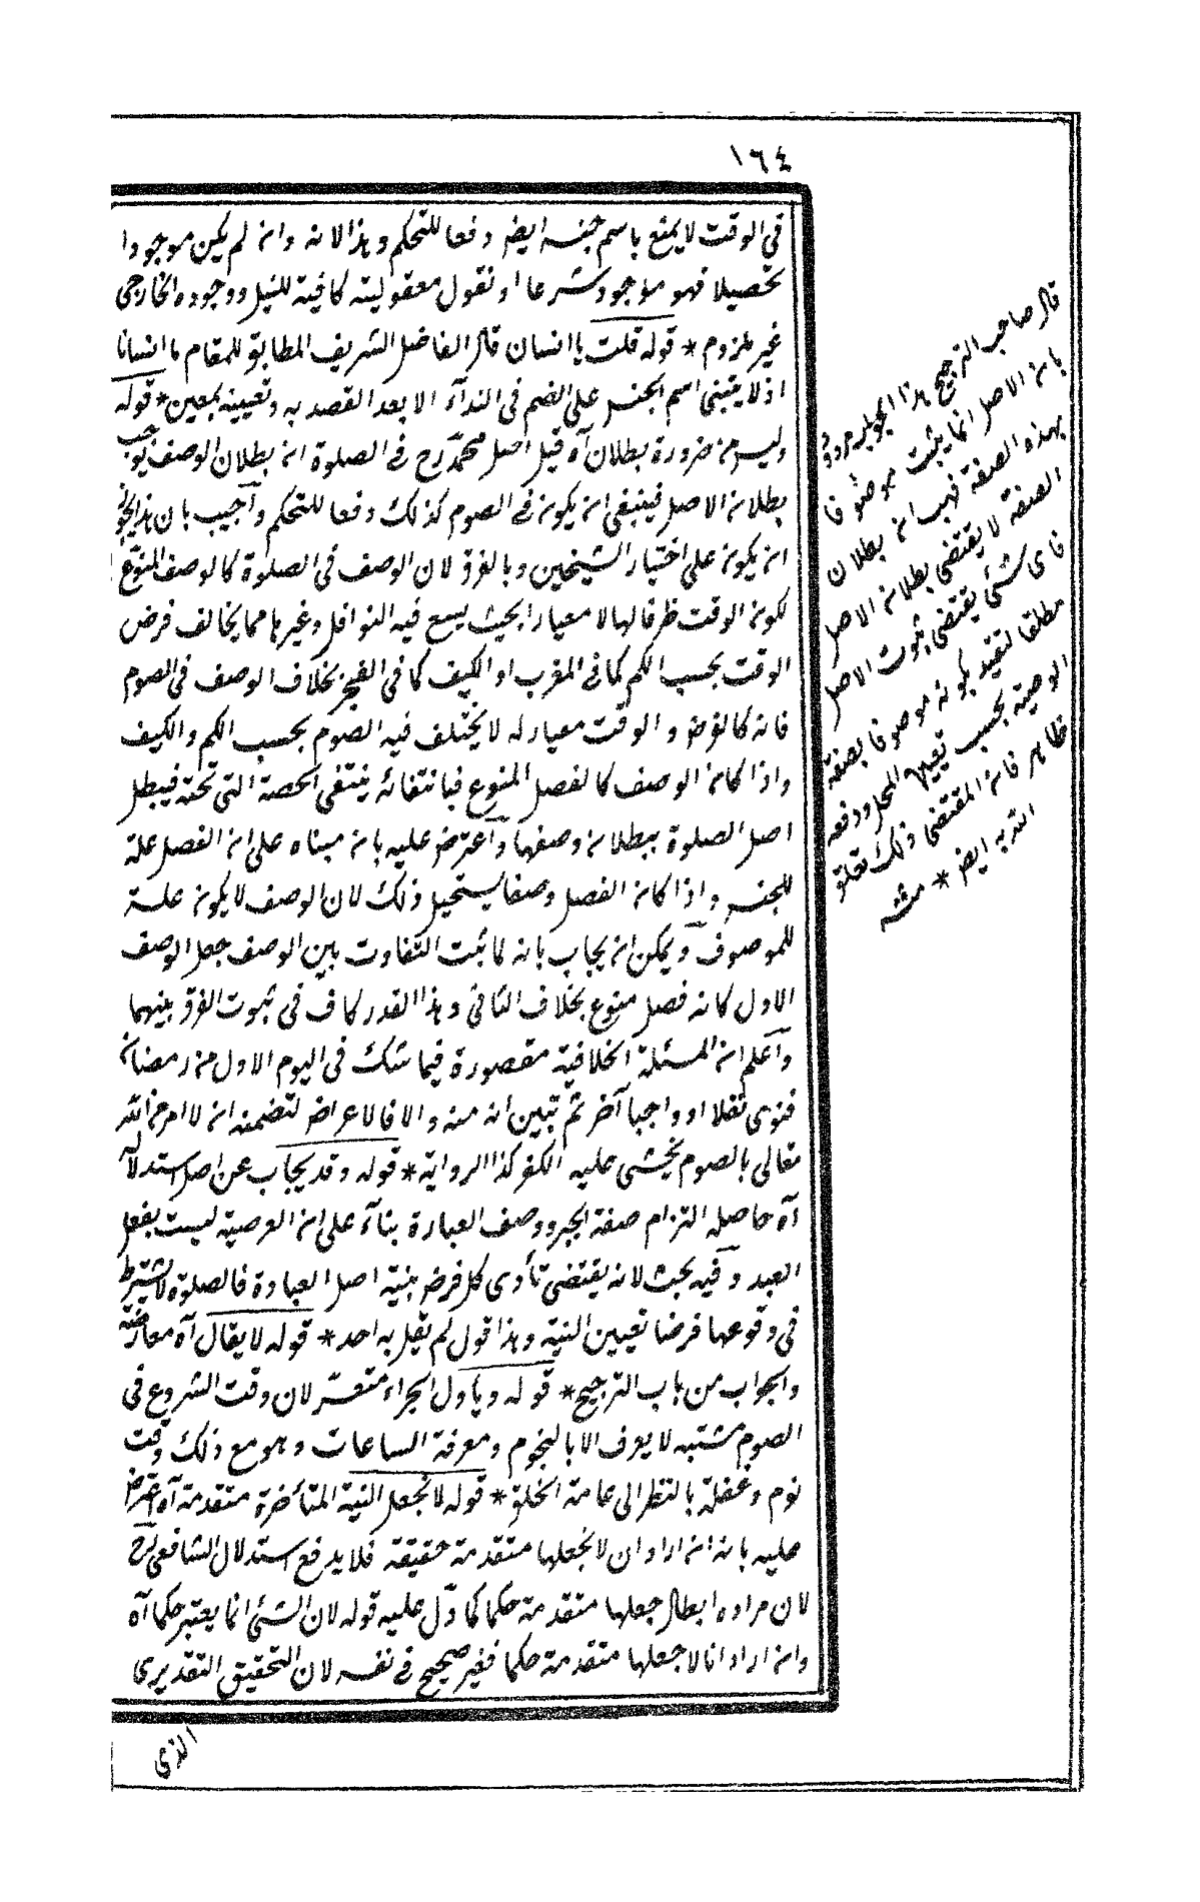 ١٦٤
في الوقت لا يمنع باسم جنسه ايضا دفعا للتحكم وهذا لانه وان لم يكن موجودا
تحصيلا فهو موجود شرعا او نقول معقوليته كافية للنيل ووجوده الخارجى
غير ملزوم * قوله قلت يا انسان قال الفاضل الشريف المطابق للمقام يا انسانا
اذ لا يبتنى اسم الجنس على الضم فى الندآء الا بعد القصد به وتعيينه بمعين * قوله
وليس من ضرورة بطلان آه قيل اصل محمد رح فى الصلوة ان بطلان الوصف يوجب
بطلان الاصل فينبغى ان يكون فى الصوم كذلك دفعا للتحكم وأجيب بان هذا يجوز
ان يكون على اختيار الشيخين وبالفرق لان الوصف فى الصلوة كالوصف المنوّع
لكون الوقت ظرفا لها لا معيارا بحيث يسع فيه النوافل وغيرها مما يخالف فرض
الوقت بحسب الكم كما فى المغرب او الكيف كما فى الفجر بخلاف الوصف فى الصوم
فانه كالفرض والوقت معيار له لا يختلف فيه الصوم بحسب الكم والكيف
واذا كان الوصف كالفصل المنوع فبانتفائه ينتفى الحصة التى تحته فيبطل
اصل الصلوة ببطلان وصفها وأعترض عليه بان مبناه على ان الفصل علة
للجنس واذا كان الفصل وصفا يستحيل ذلك لان الوصف لا يكون علة
للموصوف ويمكن ان يجاب بانه لما ثبت التفاوت بين الوصف جعل الوصف
الاول كانه فصل منوع بخلاف الثانى وهذا القدر كاف فى ثبوت الفرق بينهما
وأعلم ان المسئلة الخلافية مقصورة فيما شك فى اليوم الاول من رمضان
فنوى نفلا او واجبا آخر ثم تبين انه منه والا فالاعراض لتضمنه ان لا امر من الله
تعالى بالصوم يخشى عليه الكفر كذا الرواية * قوله وقد يجاب عن اصل استدلال
آه حاصله التزام صفة الجبر ووصف العبارة بنآء على ان العرصية ليست بفعل
العبد وفيه بحث لانه يقتضى تأدى كل فرض بنية اصل العبادة فالصلوة لا يشترط
فى وقوعها فرضا تعيين النية وهذا قول لم يقل به احد * قوله لا يقال آه معارضة
والجواب من باب الترجيح * قوله وياول الجزاء متعسر لان وقت الشروع فى
الصوم مشتبه لا يعرف الا بالنجوم ومعرفة الساعات وهو مع ذلك وقت
نوم وغفلة بالنظر الى عامة الخلق * قوله لا نجعل النية المتأخرة متقدمة آه اعترض
عليه بانه ان اراد ان لا نجعلها متقدمة حقيقة فلا يدفع استدلال الشافعى رح
لان مراده ابطال جعلها متقدمة حكما كما دل عليه قوله لان الشئ انما يعتبر حكما آه
وان اراد انا لا نجعلها متقدمة حكما فغير صحيح فى نفسه لان التحقيق التقديرى
الذى
قال صاحب الترجيح هذا الجواب مردود
بان الاصل انما يثبت موصوفا
بهذه الصفة فهب ان بطلان
الصفة لا يقتضى بطلان الاصل
فاى شئ يقتضى ثبوت الاصل
مطلقا لتقيد كونه موصوفا بصفة
الوصية بحسب تعيين المحل ودفعه
ظاهر فان المقتضى ذلك تعلق
النذر به ايضا * منه